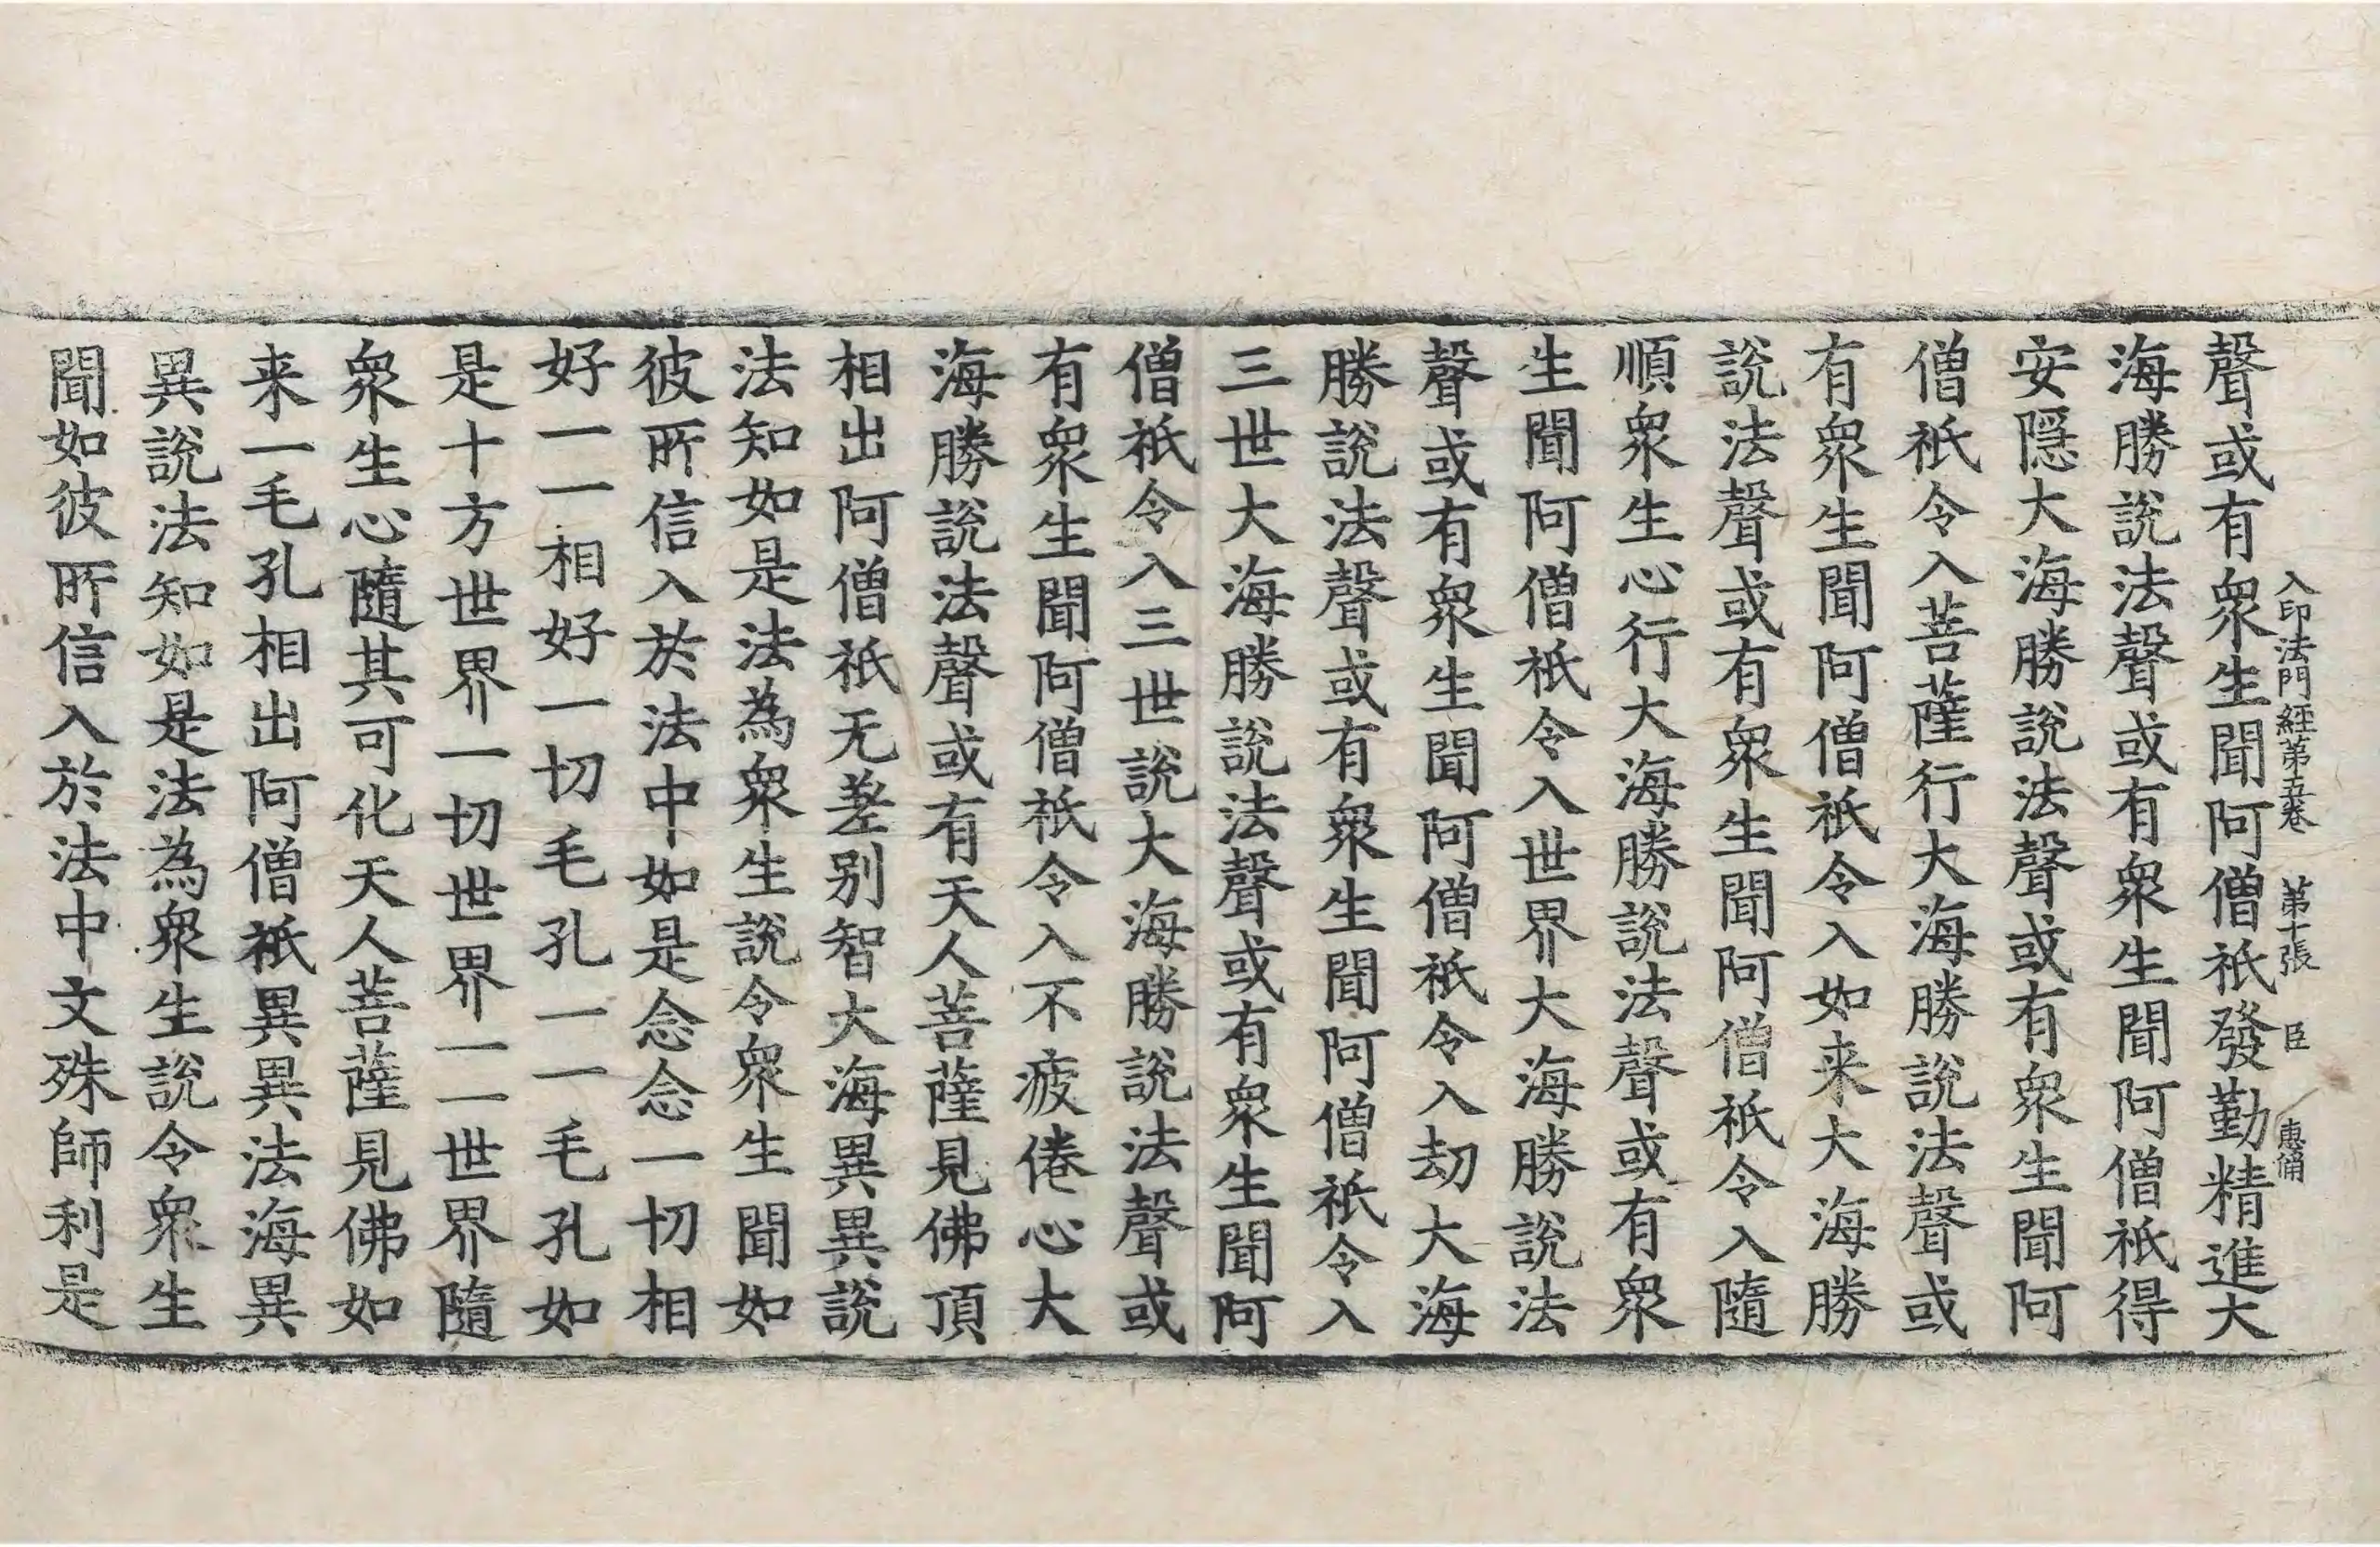 入印法門經第五卷 第十張 臣 惠脩
聲或有衆生聞阿僧祇發勤精進大
海勝說法聲或有衆生聞阿僧祇得
安隱大海勝說法聲或有衆生聞阿
僧祇令入菩薩行大海勝說法聲或
有衆生聞阿僧祇令入如来大海勝
說法聲或有衆生聞阿僧祇令入隨
順衆生心行大海勝說法聲或有衆
生聞阿僧祇令入世界大海勝說法
聲或有衆生聞阿僧祇令入劫大海
勝說法聲或有衆生聞阿僧祇令入
三世大海勝說法聲或有衆生聞阿
僧祇令入三世說大海勝說法聲或
有衆生聞阿僧祇令入不疲倦心大
海勝說法聲或有天人菩薩見佛頂
相出阿僧祇无差别智大海異異說
法知如是法為衆生說令衆生聞如
彼所信入於法中如是念念一切相
好一一相好一切毛孔一一毛孔如
是十方世界一切世界一一世界隨
衆生心隨其可化天人菩薩見佛如
来一毛孔相出阿僧祇異異法海異
異說法知如是法為衆生說令衆生
聞如彼所信入於法中文殊師利是